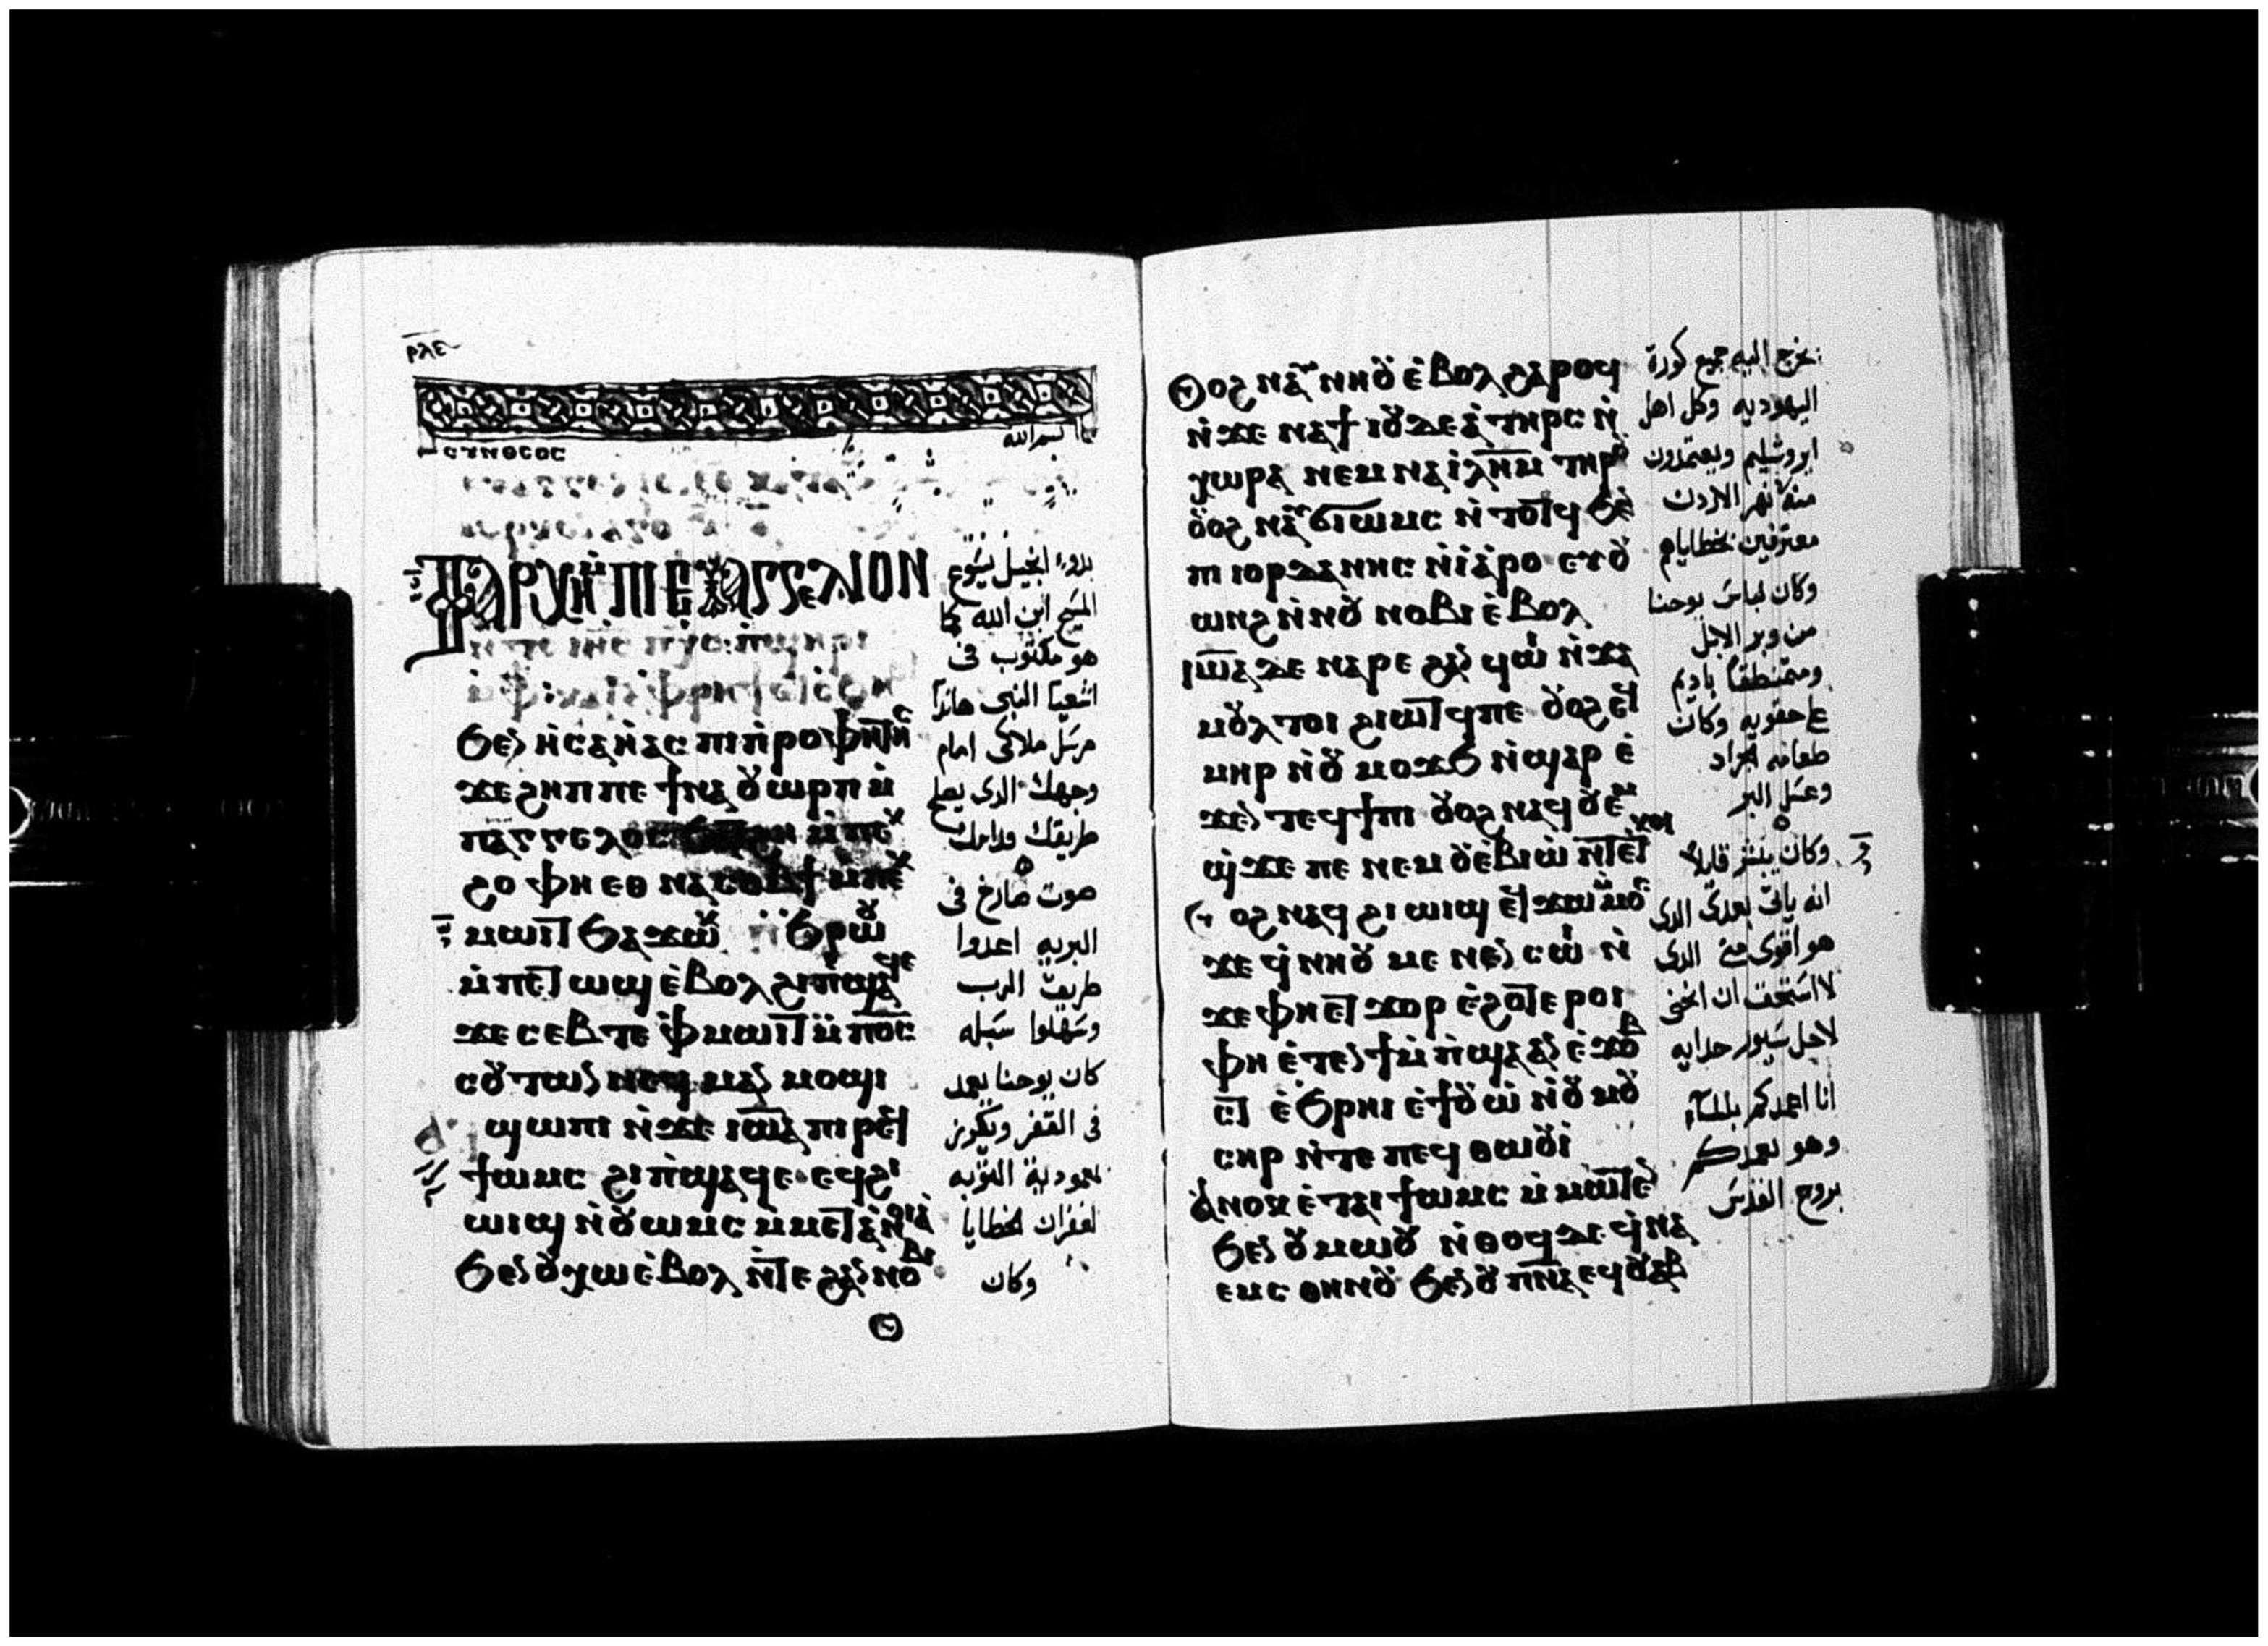 ⲣⲗⲉ
ⲥⲩⲛⲑⲉⲟⲥ
بسم الله
ⲦⲀⲢⲬⲎ ⲘⲠⲒⲈⲨⲀⲄⲄⲈⲖⲒⲟⲛ
ⲛⲧⲉ ⲓⲏⲥ ⲡⲭⲥ ⲡϣⲏⲣⲓ
ϧⲉⲛ ⲏⲥⲁⲏⲁⲥ ⲡⲓⲡⲣⲟⲫⲏⲧⲏⲥ
ϫⲉ ϩⲏⲡⲡⲉ ϯⲛⲁⲟⲩⲱⲣⲡ ⲙ
ⲡⲁⲅⲅⲉⲗⲟⲥ ⲙⲡⲉⲕ
ϩⲟ ⲫⲏ ⲉⲑⲛⲁⲥⲟⲃϯ ⲙⲡⲉⲕ
ⲙⲱⲓⲧ ϧⲁϫⲱⲕ ϧⲣⲱⲟⲩ
ⲙⲡⲉⲧⲱϣ ⲉⲃⲟⲗ ϩⲓ ⲡϣⲁϥⲉ
ϫⲉ ⲥⲉⲃⲧⲉ ⲫⲙⲱⲓⲧ ⲙⲡⲟⲥ
ⲥⲟⲩⲧⲱⲛ ⲛⲉϥⲙⲁⲛⲙⲟϣⲓ
ϣⲱⲡⲓ ⲛϫⲉ ⲓⲱⲁ ⲡⲓⲣⲉϥ
ϯⲱⲙⲥ ϩⲓ ⲡϣⲁϥⲉ ⲉϥϩⲓ
ⲱⲓϣ ⲛⲟⲩⲱⲙⲥ ⲙⲙⲉⲧⲁⲛⲟⲓⲁ
ϧⲉⲛ ⲟⲩⲭⲱ ⲉⲃⲟⲗ ⲛⲧⲉ ϩⲁⲛⲛⲟⲃⲓ
بدوء انجيل يسوع
المسيح ابن الله كما
هو مكتوب فى
اشعيا النبى هاندا
مرسل ملاكى امام
وجهك الدى يصلح
طريقك قدامك
صوت صارخ فى
البريه اعدوا
طريق الرب
وسهلوا سبله
كان يوحنا يعمد
فى القفر ويكرز
بمعودية التوبه
لغفران الخطايا
وكان
ⲟⲩⲟϩ ⲛⲁⲩⲛⲏⲟⲩ ⲉⲃⲟⲗ ϩⲁⲣⲟϥ
ⲛϫⲉ ⲛⲁ ϯⲓⲟⲩⲇⲉⲁ ⲧⲏⲣⲥ ⲛ
ⲭⲱⲣⲁ ⲛⲉⲙ ⲛⲁ ⲓⲗⲏⲙ ⲧⲏⲣⲟⲩ
ⲟⲩⲟϩ ⲛⲁⲩϭⲓⲱⲙⲥ ⲛⲧⲟⲧϥ ϧⲉⲛ
ⲡⲓⲓⲟⲣⲇⲁⲛⲏⲥ ⲛⲓⲁⲣⲟ ⲉⲩⲟⲩ
ⲱⲛϩ ⲛⲛⲟⲩⲛⲟⲃⲓ ⲉⲃⲟⲗ
ⲓⲱⲁ ⲇⲉ ⲛⲁⲣⲉ ϩⲁⲛϥⲱⲓ ⲛϫⲁ
ⲙⲟⲩⲗ ⲧⲟⲓ ϩⲓⲱⲧϥ ⲡⲉ ⲟⲩⲟϩ ⲉϥ
ⲙⲏⲣ ⲛⲟⲩⲙⲟϫϧ ⲛϣⲁⲣ ⲉ
ϫⲉⲛ ⲧⲉϥϯⲡⲓ ⲟⲩⲟϩ ⲛⲁϥⲟⲩⲉⲙ
ϣϫⲉ ⲡⲉ ⲛⲉⲙ ⲟⲩⲉⲃⲓⲱ ⲛⲧⲉ ⲧⲕⲟⲓ
ⲟⲩⲟϩ ⲛⲁϥϩⲓⲱⲓϣ ⲉϥϫⲱ ⲙⲙⲟⲥ
ϫⲉ ϥⲛⲏⲟⲩ ⲙⲉⲛⲉⲛⲥⲱⲓ ⲛ
ϫⲉ ⲫⲏ ⲉⲧϫⲟⲣ ⲉϩⲟⲧⲉⲣⲟⲓ
ⲫⲏ ⲉⲧⲉⲛϯⲙⲡϣⲁ ⲁⲛ ⲉϫⲟⲃ
ⲧ ⲉϧⲣⲏⲓ ⲉϯⲟⲩⲱ ⲛⲟⲩⲙⲟⲩ
ⲥⲏⲣ ⲛⲧⲉ ⲡⲉϥⲑⲱⲟⲩⲓ
ⲁⲛⲟⲕ ⲉⲧⲁⲓϯⲱⲙⲥ ⲙⲙⲱⲧⲉⲛ
ϧⲉⲛ ⲟⲩⲙⲱⲟⲩ ⲛⲑⲟϥ ⲇⲉ ϥⲛⲁ
ⲉⲙⲥ ⲑⲏⲛⲟⲩ ϧⲉⲛ ⲟⲩⲡⲛⲁ ⲉϥⲟⲩⲁⲃ
يخرج اليه جميع كورة
اليهوديه وكل اهل
ايروشليم ويعتمدون
منه نهر الاردن
معترفين بخطاياهم
وكان لباس يوحنا
من وبر الابل
ومتمنطقا باديم
على حقويه وكان
طعامه الجراد
وعسل البر
وكان يبشر قايلا
انه ياتى بعدى الدى
هو اقوى منى الدى
لا استحق ان انحنى
لاحل سيور حدايه
انا اعمدكم بالماء
وهو يعمدكم
بروح القدس